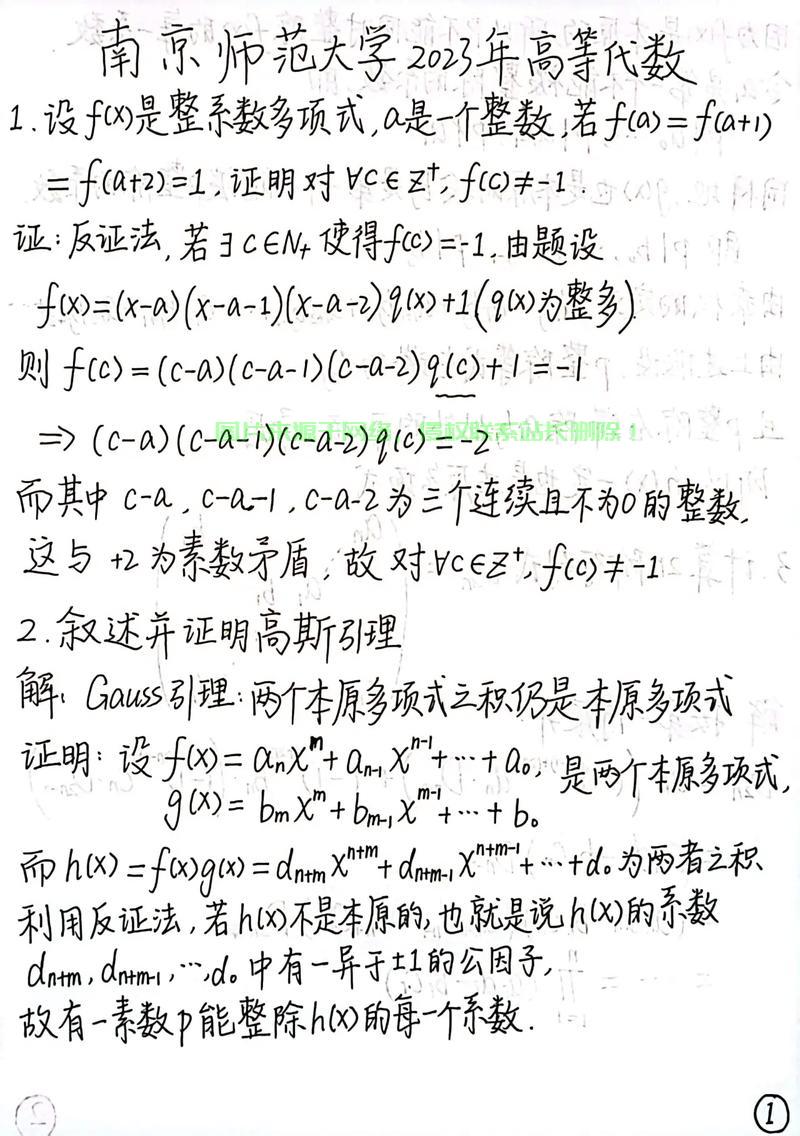 南京师范大学2023年高等代数
1.设f(x)是整系数多项式,a是一个整数,若f(a)=f(a+1)
=f(a+2)=1,证明对∀c∈Z⁺,f(c)≠-1.
证:反证法,若∃c∈N₊使得f(c)=-1,由题设
f(x)=(x-a)(x-a-1)(x-a-2)q(x)+1(q(x)为整多)
则f(c)=(c-a)(c-a-1)(c-a-2)q(c)+1=-1
⇒(c-a)(c-a-1)(c-a-2)q(c)=-2
图片来源于网络,侵权联系站长删除!
而其中c-a,c-a-1,c-a-2为三个连续且不为0的整数,
这与+2为素数矛盾,故对∀c∈Z⁺,f(c)≠-1
2.叙述并证明高斯引理
解:Gauss引理:两个本原多项式之积仍是本原多项式
证明:设f(x)=aₙxᵐ+aₙ₋₁xⁿ⁻¹+…+a₀,是两个本原多项式,
g(x)=bₘxᵐ+bₘ₋₁xᵐ⁻¹+…+b₀
而h(x)=f(x)g(x)=dₙ₊ₘxⁿ⁺ᵐ+dₙ₊ₘ₋₁xⁿ⁺ᵐ⁻¹+…+d₀为两者之积
利用反证法,若h(x)不是本原的,也就是说h(x)的系数
dₙ₊ₘ,dₙ₊ₘ₋₁,…,d₀中有一异于±1的公因子,
故有一素数p能整除h(x)的每一个系数.
①